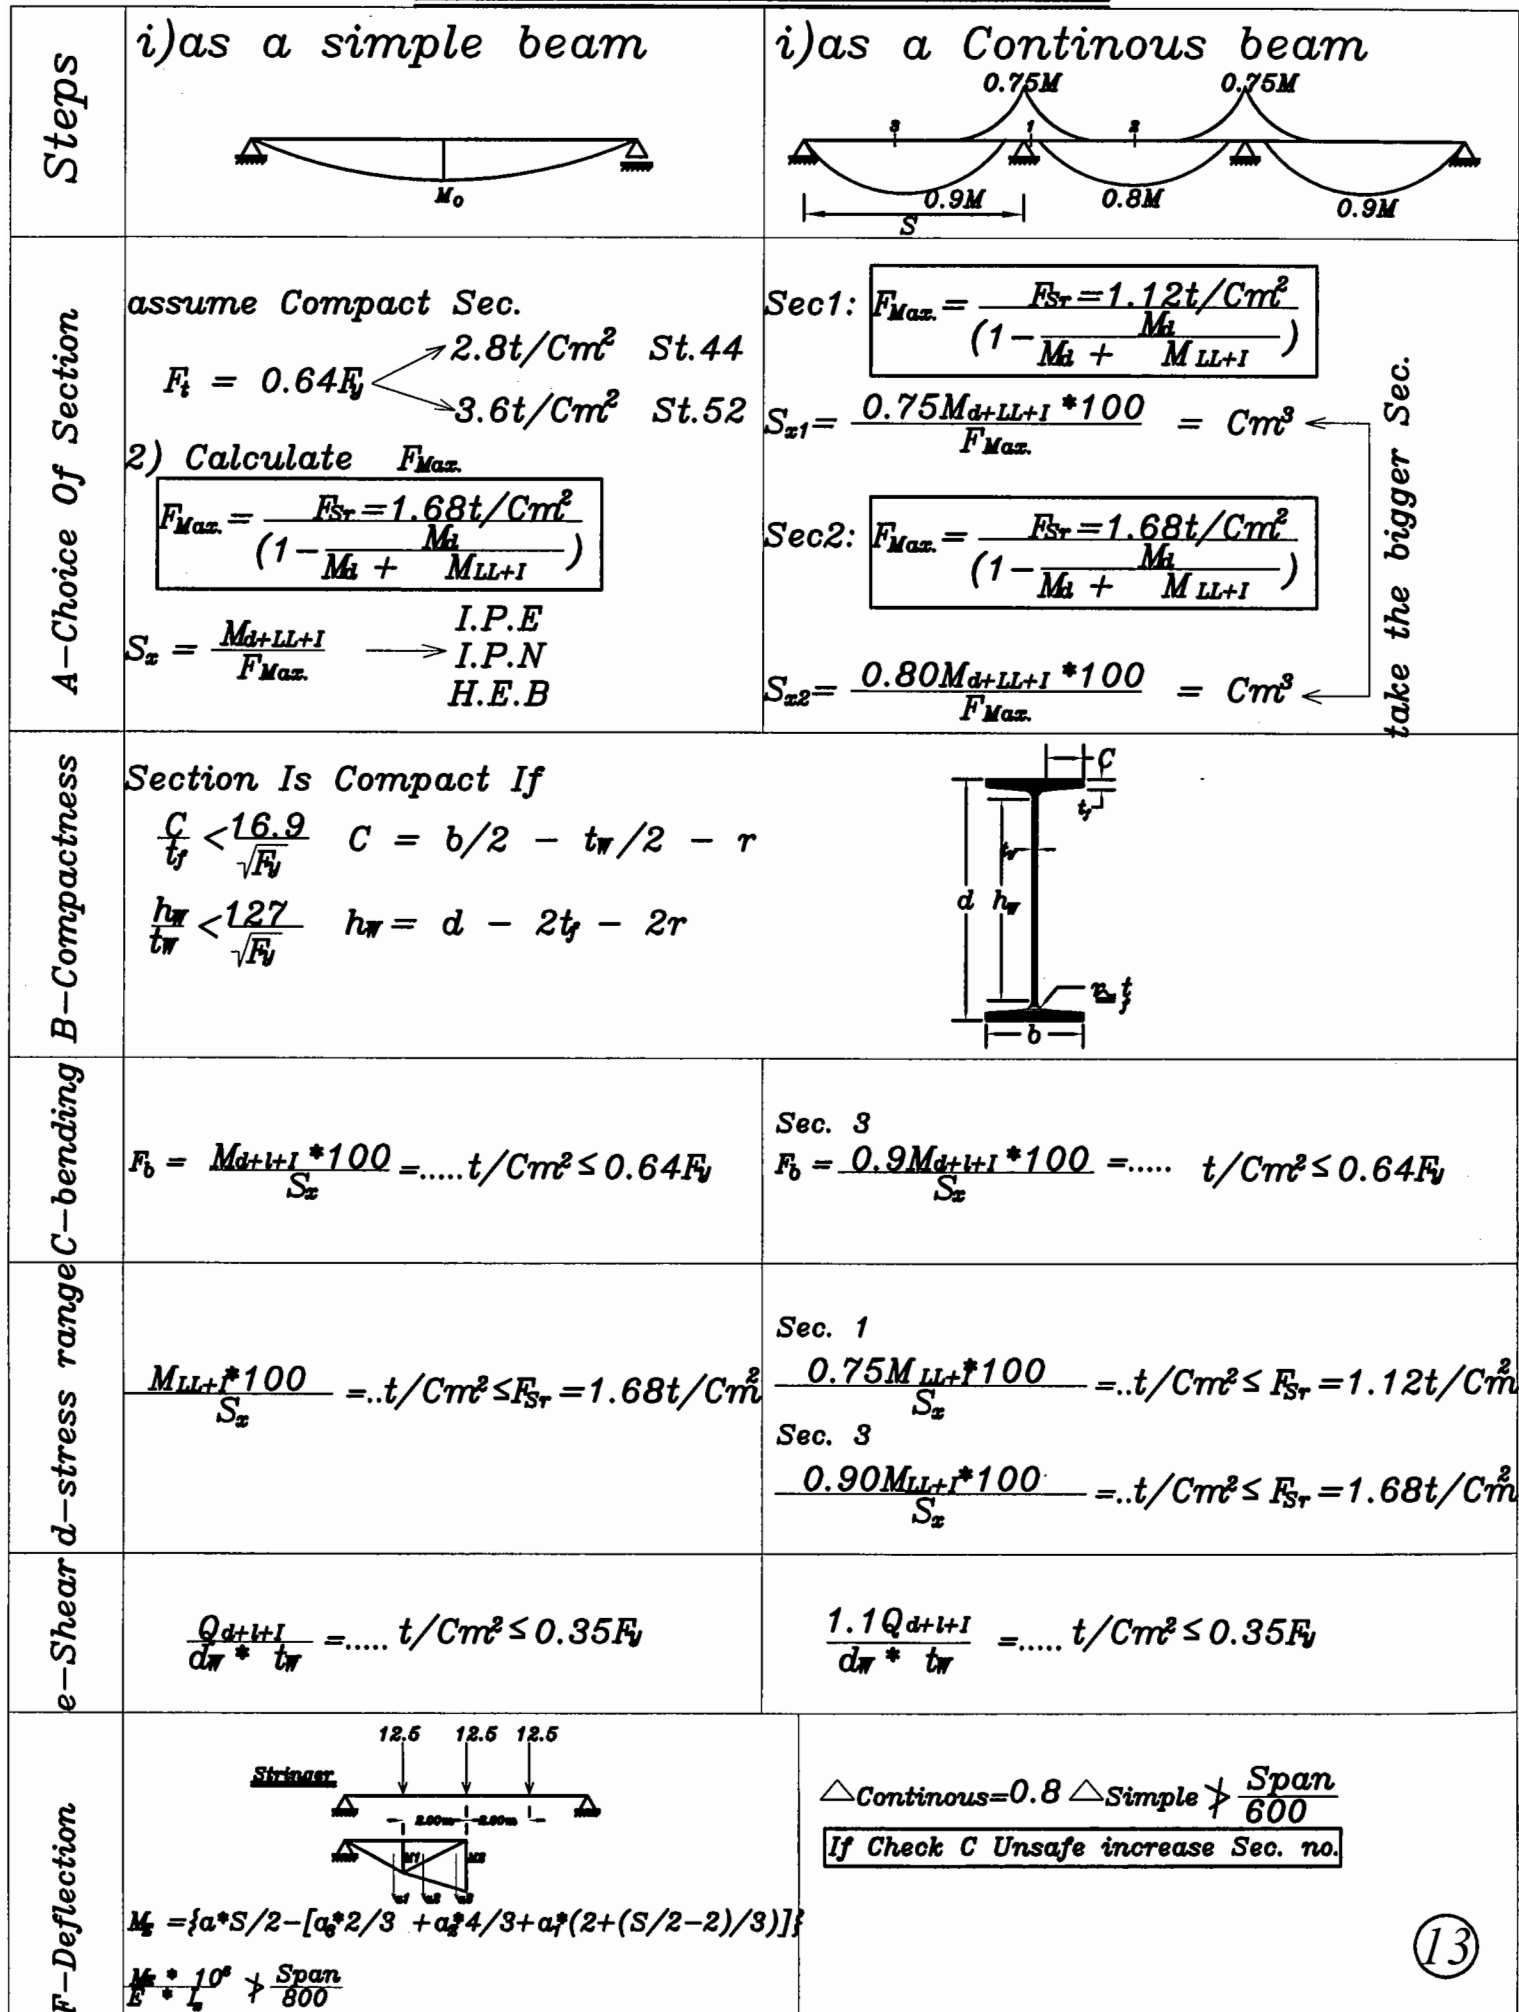 Steps
i)as a simple beam
M₀
i)as a Continous beam
0.75M 0.75M
3 1 2
0.9M 0.8M 0.9M
S
A-Choice Of Section
assume Compact Sec.
Fₜ = 0.64Fy
2.8t/Cm² St.44
3.6t/Cm² St.52
2) Calculate FMax.
FMax. = FSr=1.68t/Cm² / (1 - Md / (Md + MLL+I))
Sx = Md+LL+I / FMax.
I.P.E
I.P.N
H.E.B
Sec1: FMax. = FSr=1.12t/Cm² / (1 - Md / (Md + MLL+I))
Sx1 = 0.75Md+LL+I *100 / FMax. = Cm³
Sec2: FMax. = FSr=1.68t/Cm² / (1 - Md / (Md + MLL+I))
Sx2 = 0.80Md+LL+I *100 / FMax. = Cm³
take the bigger Sec.
B-Compactness
Section Is Compact If
C/tf < 16.9/√Fy C = b/2 - tw/2 - r
hw/tw < 127/√Fy hw = d - 2tf - 2r
C
tf
tw
d hw
b
C-bending
Fb = Md+l+I *100 / Sx =.....t/Cm² ≤ 0.64Fy
Sec. 3
Fb = 0.9Md+l+I *100 / Sx =..... t/Cm² ≤ 0.64Fy
d-stress range
MLL+I*100 / Sx =..t/Cm² ≤ FSr=1.68t/Cm²
Sec. 1
0.75MLL+I*100 / Sx =..t/Cm² ≤ FSr=1.12t/Cm²
Sec. 3
0.90MLL+I*100 / Sx =..t/Cm² ≤ FSr=1.68t/Cm²
e-Shear
Qd+l+I / dw * tw =..... t/Cm² ≤ 0.35Fy
1.1Qd+l+I / dw * tw =..... t/Cm² ≤ 0.35Fy
F-Deflection
12.5 12.5 12.5
Stringer
2.00m 2.00m
M1 M2
a1 a2 a3
={a*S/2-[ *2/3 + *4/3+ *(2+(S/2-2)/3)]}
≯ Span/800
△Continous=0.8 △Simple ≯ Span/600
If Check C Unsafe increase Sec. no.
13